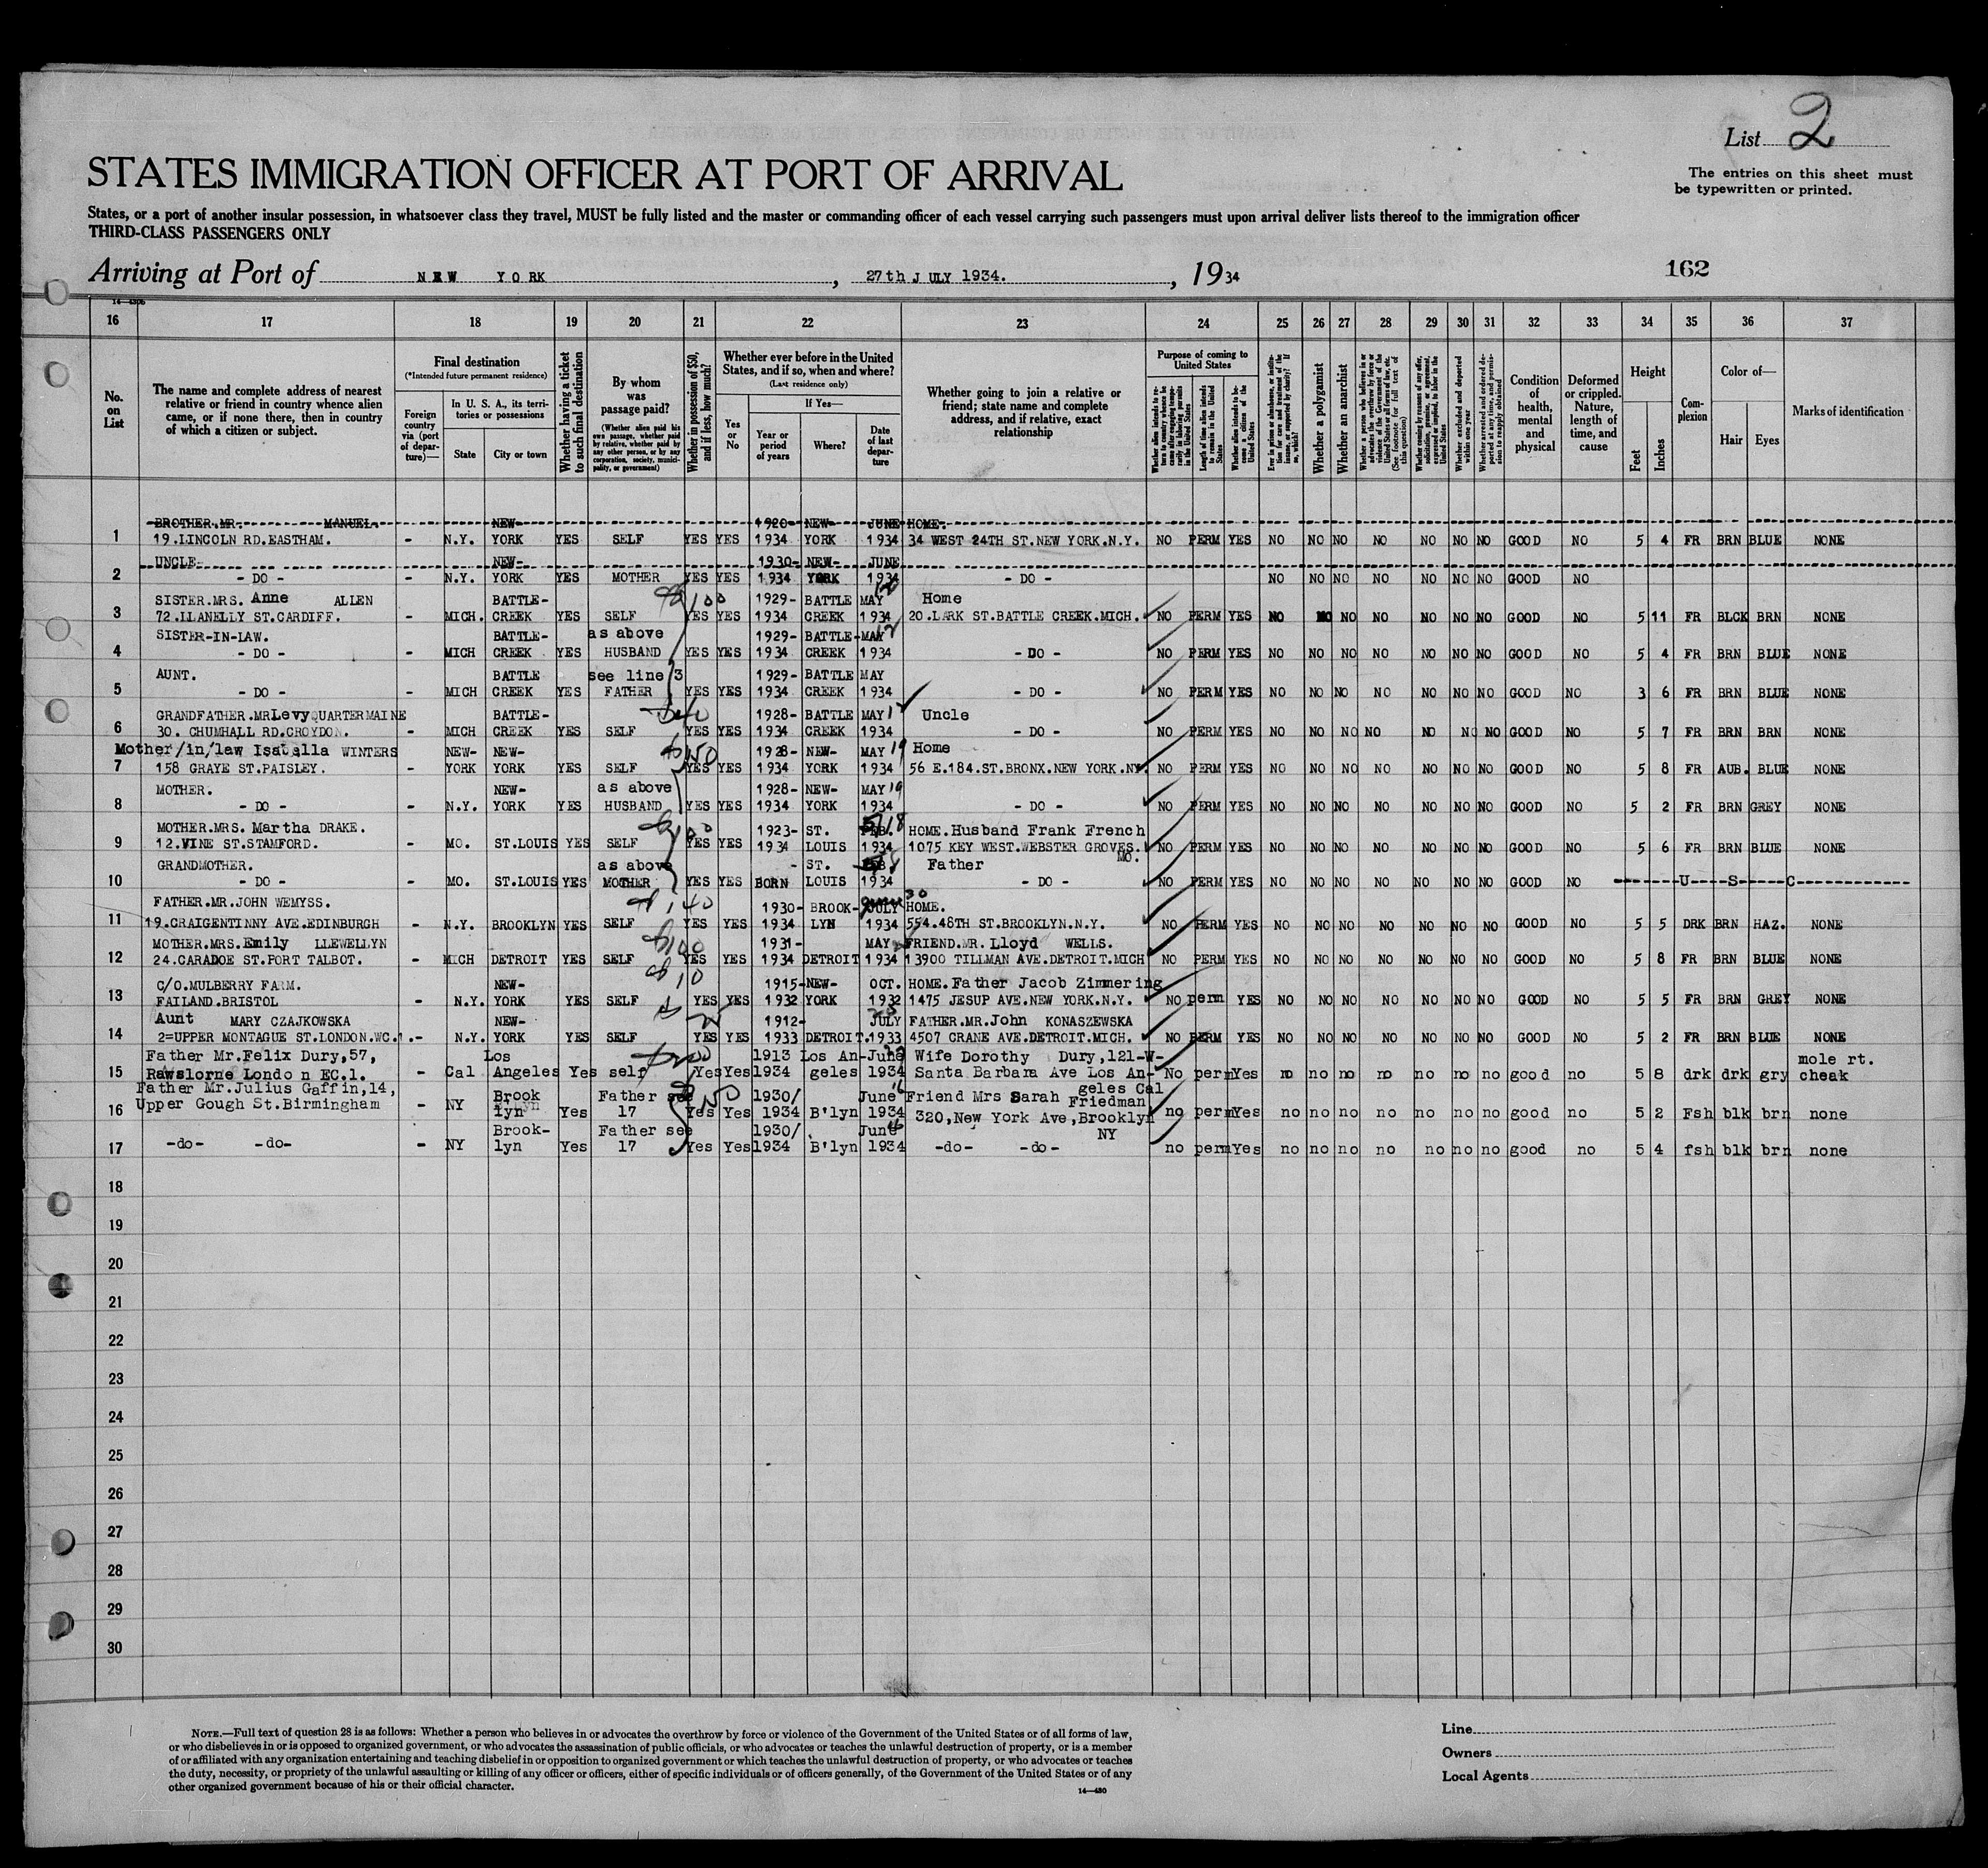 List 2
The entries on this sheet must
be typewritten or printed.
STATES IMMIGRATION OFFICER AT PORT OF ARRIVAL
States, or a port of another insular possession, in whatsoever class they travel, MUST be fully listed and the master or commanding officer of each vessel carrying such passengers must upon arrival deliver lists thereof to the immigration officer
THIRD-CLASS PASSENGERS ONLY
Arriving at Port of NEW YORK, 27th JULY 1934., 1934
162
16 17 18 19 20 21 22 23 24 25 26 27 28 29 30 31 32 33 34 35 36 37
No. on List
The name and complete address of nearest relative or friend in country whence alien came, or if none there, then in country of which a citizen or subject.
Final destination
(*Intended future permanent residence)
Foreign country via (port of departure)—
In U. S. A., its territories or possessions
State
City or town
Whether having a ticket to such final destination
By whom was passage paid?
(Whether alien paid his own passage, whether paid by relative, whether paid by any other person, or by any corporation, society, municipality, or government)
Whether in possession of $50, and if less, how much?
Whether ever before in the United States, and if so, when and where?
(Last residence only)
Yes or No
If Yes—
Year or period of years
Where?
Date of last departure
Whether going to join a relative or friend; state name and complete address, and if relative, exact relationship
Purpose of coming to United States
Length of time alien intends to remain in the United States
Whether alien intends to become a citizen of the United States
Whether a polygamist
Whether an anarchist
Condition of health, mental and physical
Deformed or crippled. Nature, length of time, and cause
Height
Feet
Inches
Complexion
Color of—
Hair
Eyes
Marks of identification
BROTHER.MR. MANUEL. NEW- 1920- NEW- JUNE HOME.
1 19.LINCOLN RD.EASTHAM. - N.Y. YORK YES SELF YES YES 1934 YORK 1934 34 WEST 24TH ST.NEW YORK.N.Y. NO PERM YES NO NO NO NO NO NO NO GOOD NO 5 4 FR BRN BLUE NONE
UNCLE- NEW- 1930- NEW- JUNE
2 - DO - - N.Y. YORK YES MOTHER YES YES 1934 YORK 1934 - DO - NO NO NO NO NO NO NO GOOD NO
SISTER.MRS. Anne ALLEN BATTLE- 100 1929- BATTLE MAY Home
3 72.LLANELLY ST.CARDIFF. - MICH. CREEK YES SELF YES YES 1934 CREEK 1934 20.LARK ST.BATTLE CREEK.MICH. NO PERM YES NO NO NO NO NO NO NO GOOD NO 5 11 FR BLCK BRN NONE
SISTER-IN-LAW. BATTLE- as above 1929- BATTLE- MAY 12
4 - DO - - MICH CREEK YES HUSBAND YES YES 1934 CREEK 1934 - DO - NO PERM YES NO NO NO NO NO NO NO GOOD NO 5 4 FR BRN BLUE NONE
AUNT. BATTLE see line 3 1929- BATTLE MAY
5 - DO - - MICH CREEK YES FATHER YES YES 1934 CREEK 1934 - DO - NO PERM YES NO NO NO NO NO NO NO GOOD NO 3 6 FR BRN BLUE NONE
GRANDFATHER.MR Levy QUARTERMAINE BATTLE- $40 1928- BATTLE MAY Uncle
6 30. CHUMHALL RD.CROYDON. - MICH CREEK YES SELF YES YES 1934 CREEK 1934 - DO - NO PERM YES NO NO NO NO NO NO NO GOOD NO 5 7 FR BRN BRN NONE
Mother/in/law Isabella WINTERS NEW- NEW- $150 1928- NEW- MAY 19 Home
7 158 GRAYE ST.PAISLEY. - YORK YORK YES SELF YES YES 1934 YORK 1934 56 E.184.ST.BRONX.NEW YORK.NY. NO PERM YES NO NO NO NO NO NO NO GOOD NO 5 8 FR AUB. BLUE NONE
MOTHER. NEW- as above 1928- NEW- MAY 19
8 - DO - - N.Y. YORK YES HUSBAND YES YES 1934 YORK 1934 - DO - NO PERM YES NO NO NO NO NO NO NO GOOD NO 5 2 FR BRN GREY NONE
MOTHER.MRS. Martha DRAKE. $100 1923- ST. FEB. 5/18 HOME.Husband Frank French
9 12.VINE ST.STAMFORD. - MO. ST.LOUIS YES SELF YES YES 1934 LOUIS 1934 1075 KEY WEST.WEBSTER GROVES. MO. NO PERM YES NO NO NO NO NO NO NO GOOD NO 5 6 FR BRN BLUE NONE
GRANDMOTHER. as above - ST. Father
10 - DO - - MO. ST.LOUIS YES MOTHER YES YES BORN LOUIS 1934 - DO - NO PERM YES NO NO NO NO NO NO NO GOOD NO U S C
FATHER.MR.JOHN WEMYSS. $140 1930- BROOK- JULY 30 HOME.
11 19.CRAIGENTINNY AVE.EDINBURGH - N.Y. BROOKLYN YES SELF YES YES 1934 LYN 1934 554.48TH ST.BROOKLYN.N.Y. NO PERM YES NO NO NO NO NO NO NO GOOD NO 5 5 DRK BRN HAZ. NONE
MOTHER.MRS.Emily LLEWELLYN $100 1931- MAY FRIEND.MR.Lloyd WELLS.
12 24.CARADOE ST.PORT TALBOT. - MICH DETROIT YES SELF YES YES 1934 DETROIT 1934 13900 TILLMAN AVE.DETROIT.MICH NO PERM YES NO NO NO NO NO NO NO GOOD NO 5 8 FR BRN BLUE NONE
C/O.MULBERRY FARM. NEW- $10 1915- NEW- OCT. HOME.Father Jacob Zimmering
13 FAILAND.BRISTOL - N.Y. YORK YES SELF YES YES 1932 YORK 1932 1475 JESUP AVE.NEW YORK.N.Y. NO perm YES NO NO NO NO NO NO NO GOOD NO 5 5 FR BRN GREY NONE
Aunt MARY CZAJKOWSKA NEW- 1912- JULY FATHER.MR.John KONASZEWSKA
14 2=UPPER MONTAGUE ST.LONDON.WC.1.- N.Y. YORK YES SELF YES YES 1933 DETROIT. 1933 4507 CRANE AVE.DETROIT.MICH. NO PERM YES NO NO NO NO NO NO NO GOOD NO 5 2 FR BRN BLUE NONE
Father Mr.Felix Dury,57, Los 1913 Los An- June Wife Dorothy Dury,121-W- mole rt.
15 Rawslorne London EC.1. - Cal Angeles Yes self Yes Yes 1934 geles 1934 Santa Barbara Ave Los An- geles Cal No perm Yes no no no no no no no good no 5 8 drk drk gry cheak
Father Mr.Julius Gaffin,14, Brook Father see $150 1930/ June Friend Mrs Sarah Friedman
16 Upper Gough St.Birmingham - NY lyn Yes 17 Yes Yes 1934 B'lyn 1934 320,New York Ave,Brooklyn NY no perm Yes no no no no no no no good no 5 2 Fsh blk brn none
Brook- Father see 1930/ June
17 -do- -do- - NY lyn Yes 17 Yes Yes 1934 B'lyn 1934 -do- -do- no perm Yes no no no no no no no good no 5 4 fsh blk brn none
18
19
20
21
22
23
24
25
26
27
28
29
30
NOTE.—Full text of question 28 is as follows: Whether a person who believes in or advocates the overthrow by force or violence of the Government of the United States or of all forms of law,
or who disbelieves in or is opposed to organized government, or who advocates the assassination of public officials, or who advocates or teaches the unlawful destruction of property, or is a member
of or affiliated with any organization entertaining and teaching disbelief in or opposition to organized government or which teaches the unlawful destruction of property, or who advocates or teaches
the duty, necessity, or propriety of the unlawful assaulting or killing of any officer or officers, either of specific individuals or of officers generally, of the Government of the United States or of any
other organized government because of his or their official character.
14—430
Line
Owners
Local Agents